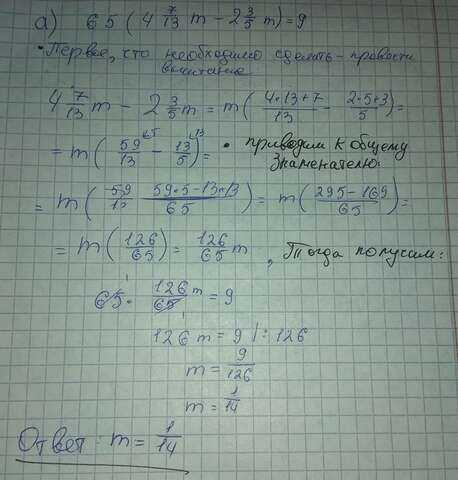 а) 65(4 7/13 m − 2 3/5 m) = 9
• Первое, что необходимо сделать – провести
вычитание
4 7/13 m − 2 3/5 m = m( (4·13+7)/13 − (2·5+3)/5 ) =
= m( 59/13 ⁵ − 13/5 ¹³ ) = • приводим к общему
знаменателю:
= m( (59·5−13·13)/65 ) = m( (295−169)/65 ) =
= m( 126/65 ) = 126/65 m , Тогда получим:
65 · 126/65 m = 9
126 m = 9 | : 126
m = 9/126
m = 1/14
Ответ: m = 1/14